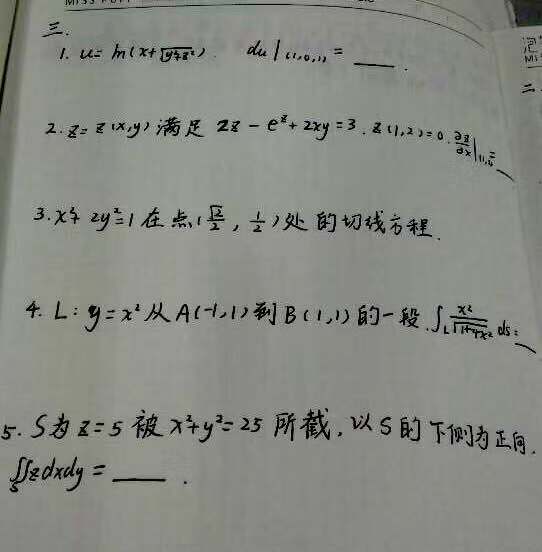 三.
1. u = ln(x+√(y²+z²)). du|(1,0,1) = ___.
2. z = z(x,y) 满足 2z - e^z + 2xy = 3. z(1,2) = 0. ∂z/∂x|(1,2) = __
3. x²+2y²=1 在点(√2/2, 1/2)处的切线方程.
4. L: y = x² 从 A(-1,1) 到 B(1,1) 的一段. ∫_L x²/√(1+4x²) ds = __
5. S为 z=5 被 x²+y²=25 所截, 以S的下侧为正向,
∬_S z dxdy = ___.
二